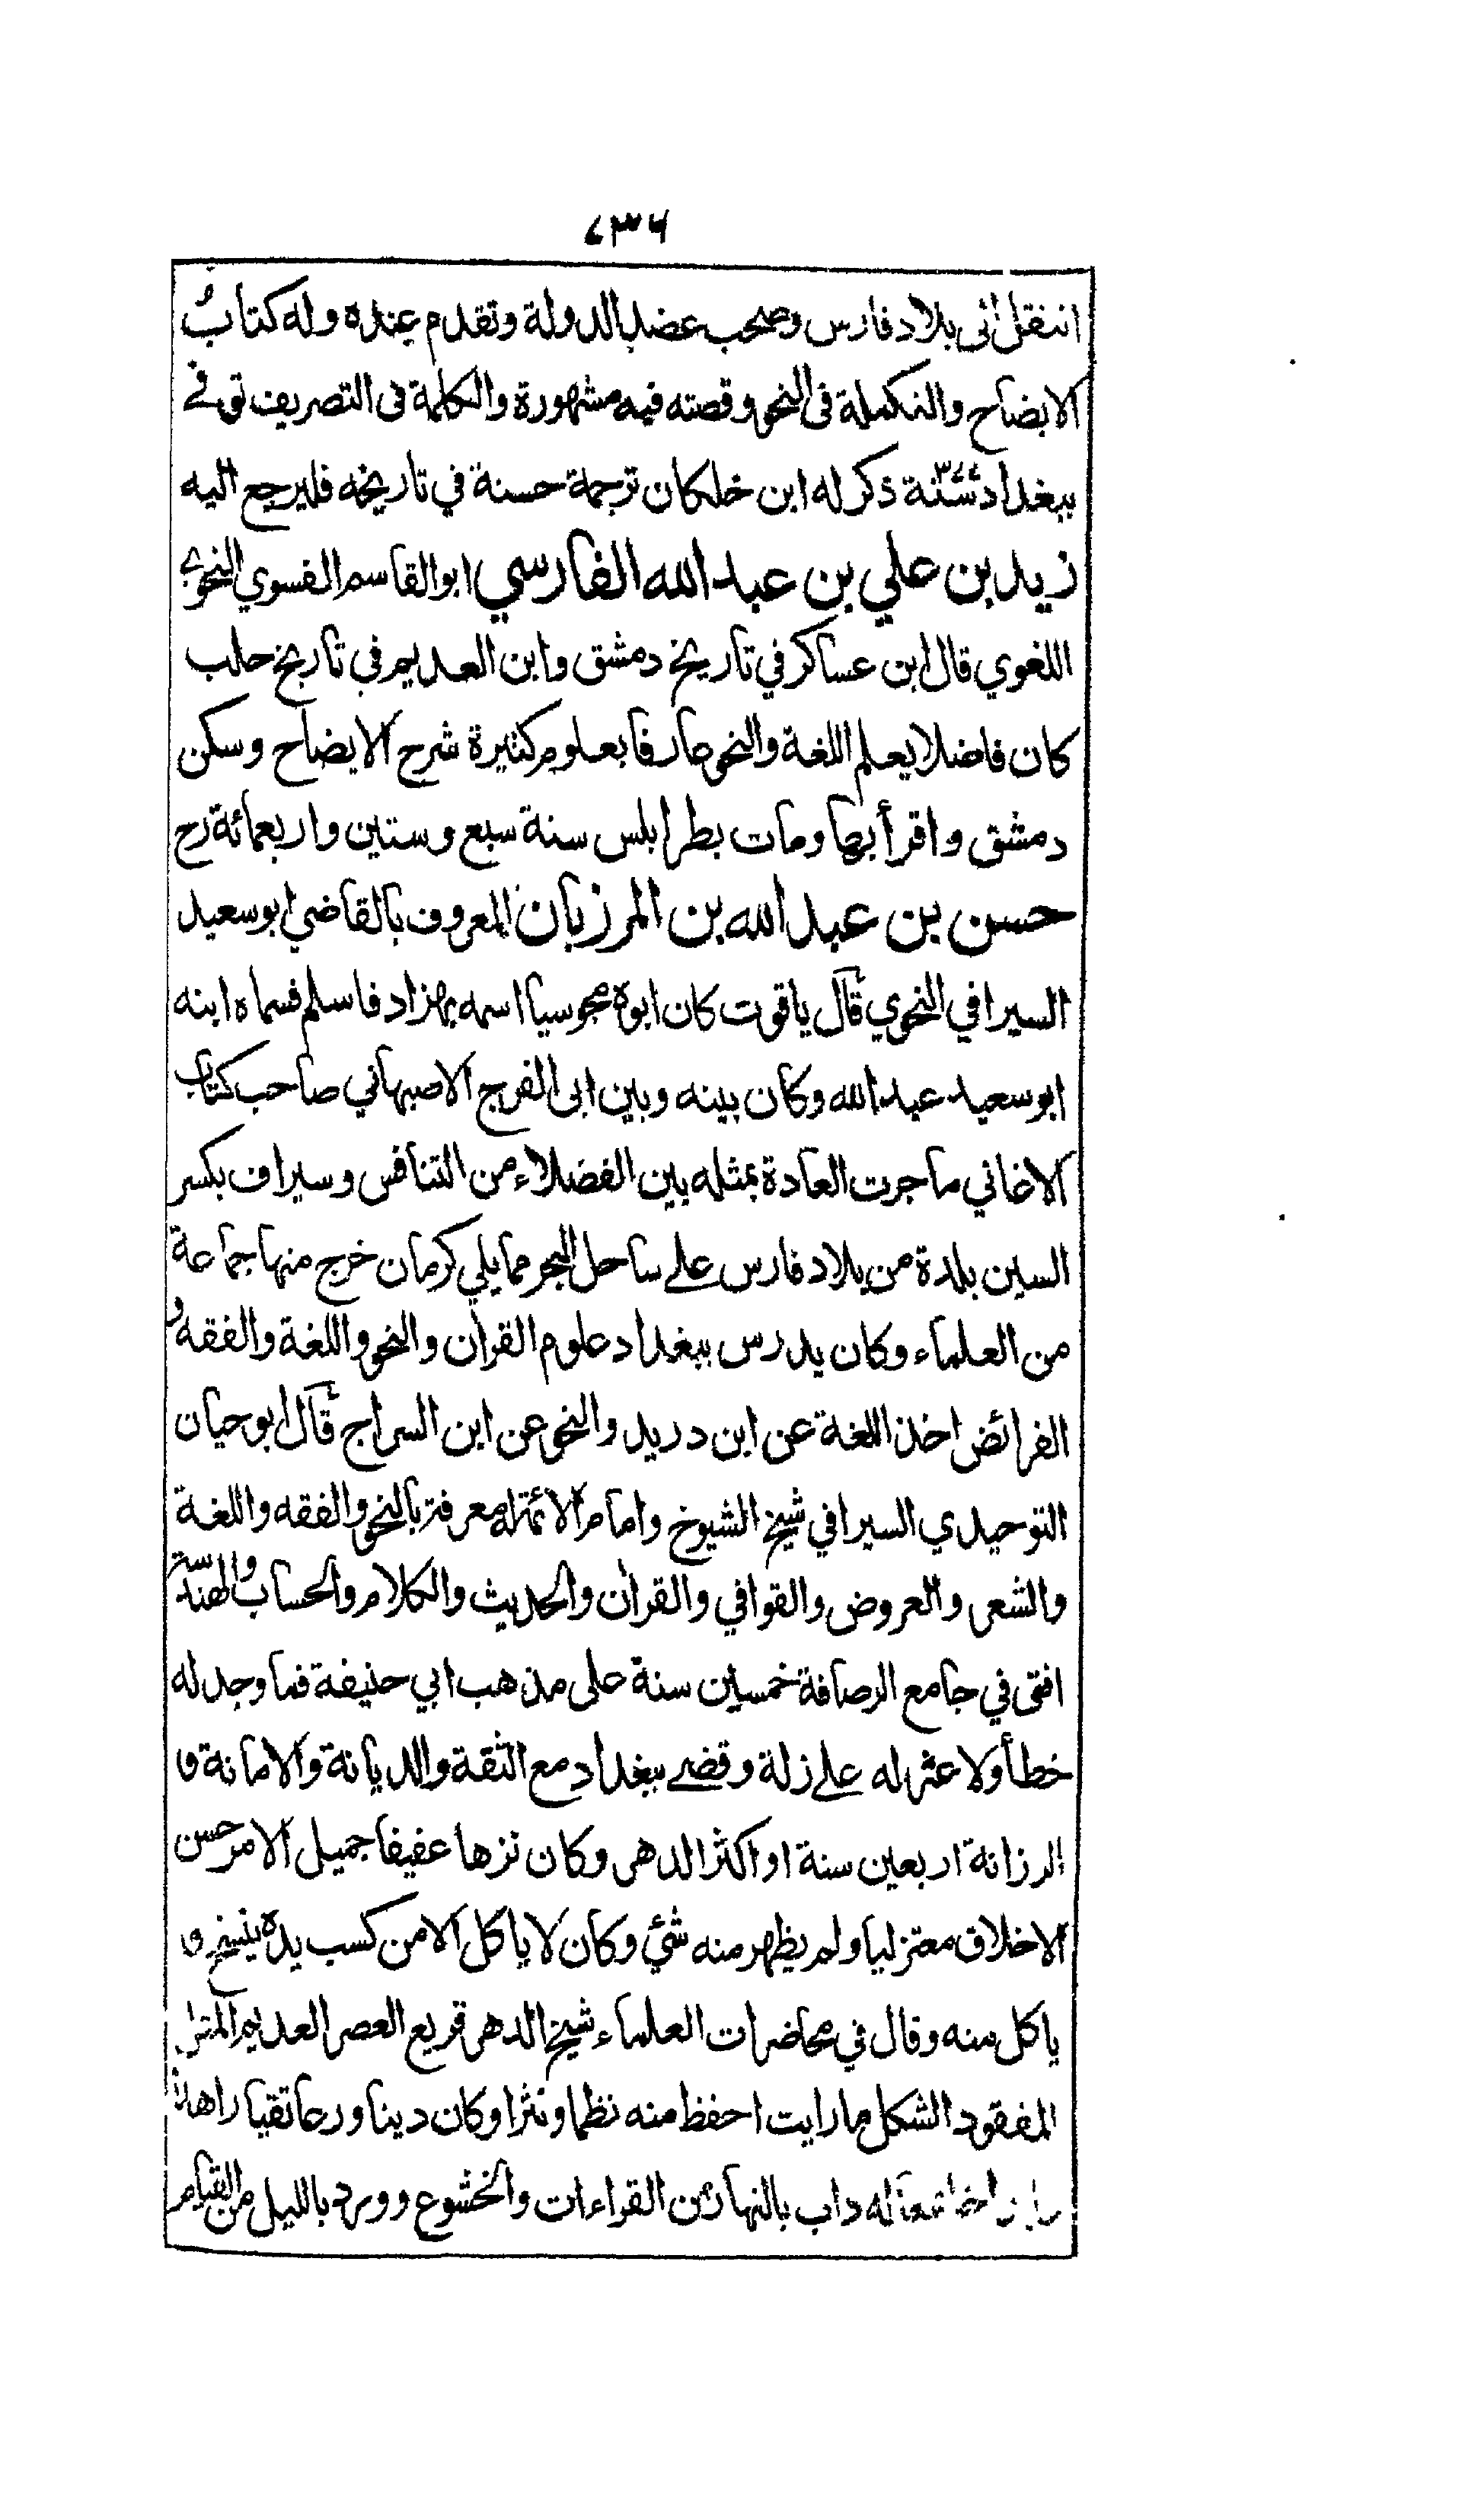 ٧٣٦
انتقل الى بلاد فارس وصحب عضد الدولة وتقدم عنده وله كتاب
الايضاح والتكملة في النحو وقصته فيه مشهورة والكلمة في التصريف توفي
ببغداد سنة ٣٧٧ ذكر له ابن خلكان ترجمة حسنة في تاريخه فليرجع اليه
زيد بن علي بن عبد الله الفارسي ابو القاسم الفسوي النحوي
اللغوي قال ابن عساكر في تاريخ دمشق وابن العديم في تاريخ حلب
كان فاضلا يعلم اللغة والنحو عارفا بعلوم كثيرة شرح الايضاح وسكن
دمشق واقرأ بها ومات بطرابلس سنة سبع وستين واربعمائة رح
حسن بن عبد الله بن المرزبان المعروف بالقاضي ابو سعيد
السيرافي النحوي قال ياقوت كان ابوه مجوسيا اسمه بهزاد فاسلم فسماه ابنه
ابو سعيد عبد الله وكان بينه وبين ابى الفرج الاصبهاني صاحب كتاب
الاغاني ما جرت العادة بمثله بين الفضلاء من التنافس وسيراف بكسر
السين بلدة من بلاد فارس على ساحل البحر مما يلي كرمان خرج منها جماعة
من العلماء وكان يدرس ببغداد علوم القران والنحو واللغة والفقه و
الفرائض اخذ اللغة عن ابن دريد والنحو عن ابن السراج قال ابو حيان
التوحيدي السيرافي شيخ الشيوخ وامام الائمة له معرفة بالنحو والفقه واللغة
والشعر والعروض والقوافي والقران والحديث والكلام والحساب والهندسة
افتى في جامع الرصافة خمسين سنة على مذهب ابي حنيفة فما وجد له
خطأ ولا عثر له على زلة وقضى ببغداد مع الثقة والديانة والامانة و
الرزانة اربعين سنة او اكثر الدهر وكان نزها عفيفا جميل الامر حسن
الاخلاق معتزليا ولم يظهر منه شئ وكان لا ياكل الا من كسب يده ينسخ و
ياكل منه وقال في محاضرات العلماء شيخ الدهر قريع العصر العديم المثل
المفقود الشكل ما رايت احفظ منه نظما ونثرا وكان دينا ورعا تقيا زاهدا
خاشعا له داب بالنهار من القراءات والخشوع وورد بالليل من القيام